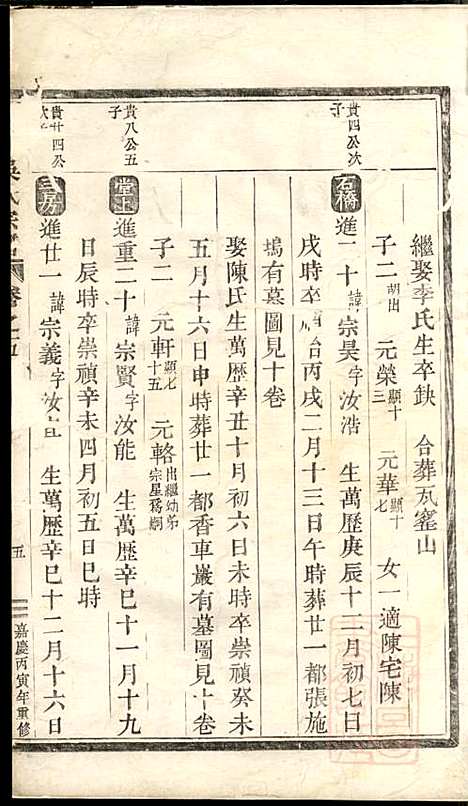 繼娶李氏生卒缺 合葬瓦窰山
子二 胡出 元榮 顯十三 元華 顯十七 女一適陳宅陳
貴四公次子
石橋 進二十 諱宗昊字汝浩 生萬歷庚辰十二月初七日
戌時卒 治丙戌二月十三日午時葬廿一都張施
塢有墓圖見十卷
娶陳氏生萬歷辛丑十月初六日未時卒崇禎癸未
五月十六日申時葬廿一都香車巖有墓圖見十卷
子二 元軒 顯七十五 元輅 出繼幼弟宗星爲嗣
貴八公五子
堂上 進重二十 諱宗賢字汝能 生萬歷辛巳十一月十九
日辰時卒崇禎辛未四月初五日巳時
貴廿四公次
三房 進廿一 諱宗義字汝 生萬歷辛巳十二月十六日
吳氏宗譜 卷之五
五
嘉慶丙寅年重修